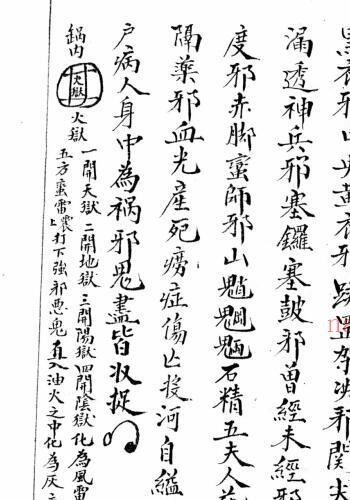 黑衣邪中央黃衣邪踏罡邪關
漏透神兵邪塞鑼塞鼓邪曾經未經邪
度邪赤脚蛮師邪山魈魍魎石精五夫人
隔藥邪血光産死癆症傷亡投河自縊
户病人身中為祸邪鬼盡皆收捉
鍋内
火獄
火獄
一開天獄二開地獄三開陽獄四開陰獄化為風雷
五方蛮雷震上打下強邪恶鬼直入油火之中化為灰